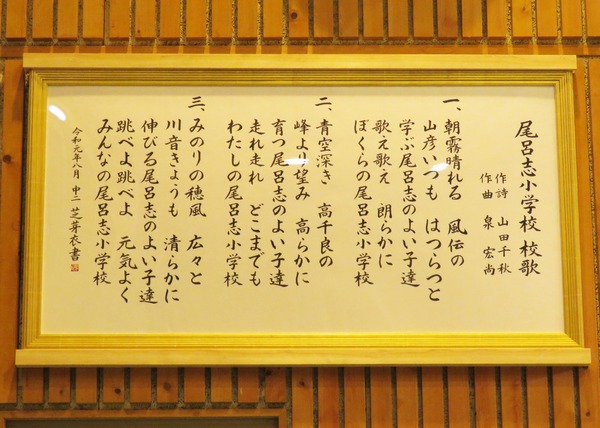 尾呂志小学校 校歌
作詩 山田千秋
作曲 泉 宏尚
一、朝霧晴れる 風伝の
山彦いつも はつらつと
学ぶ尾呂志のよい子達
歌え歌え 朗らかに
ぼくらの尾呂志小学校
二、青空深き 高千良の
峰より望み 高らかに
育つ尾呂志のよい子達
走れ走れ どこまでも
わたしの尾呂志小学校
三、みのりの穂風 広々と
川音きょうも 清らかに
伸びる尾呂志のよい子達
跳べよ跳べよ 元気よく
みんなの尾呂志小学校
令和元年八月 中二 芝芽衣書